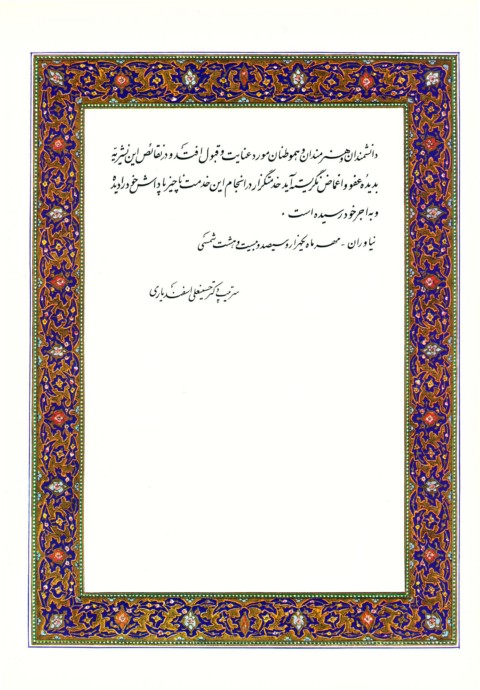 دانشمندان و هنرمندان و هموطنان مورد عنایت و قبول افتد و در نقائص این نشریه
بدیده عفو و اغماض نگریسته آید خدمتگزار در انجام این خدمت ناچیز پاداش خود را دیده
و به اجر خود رسیده است .
نیاوران - مهر ماه یکهزار و سیصد و بیست و هشت شمسی
سرتیپ دکتر حسینعلی اسفندیاری